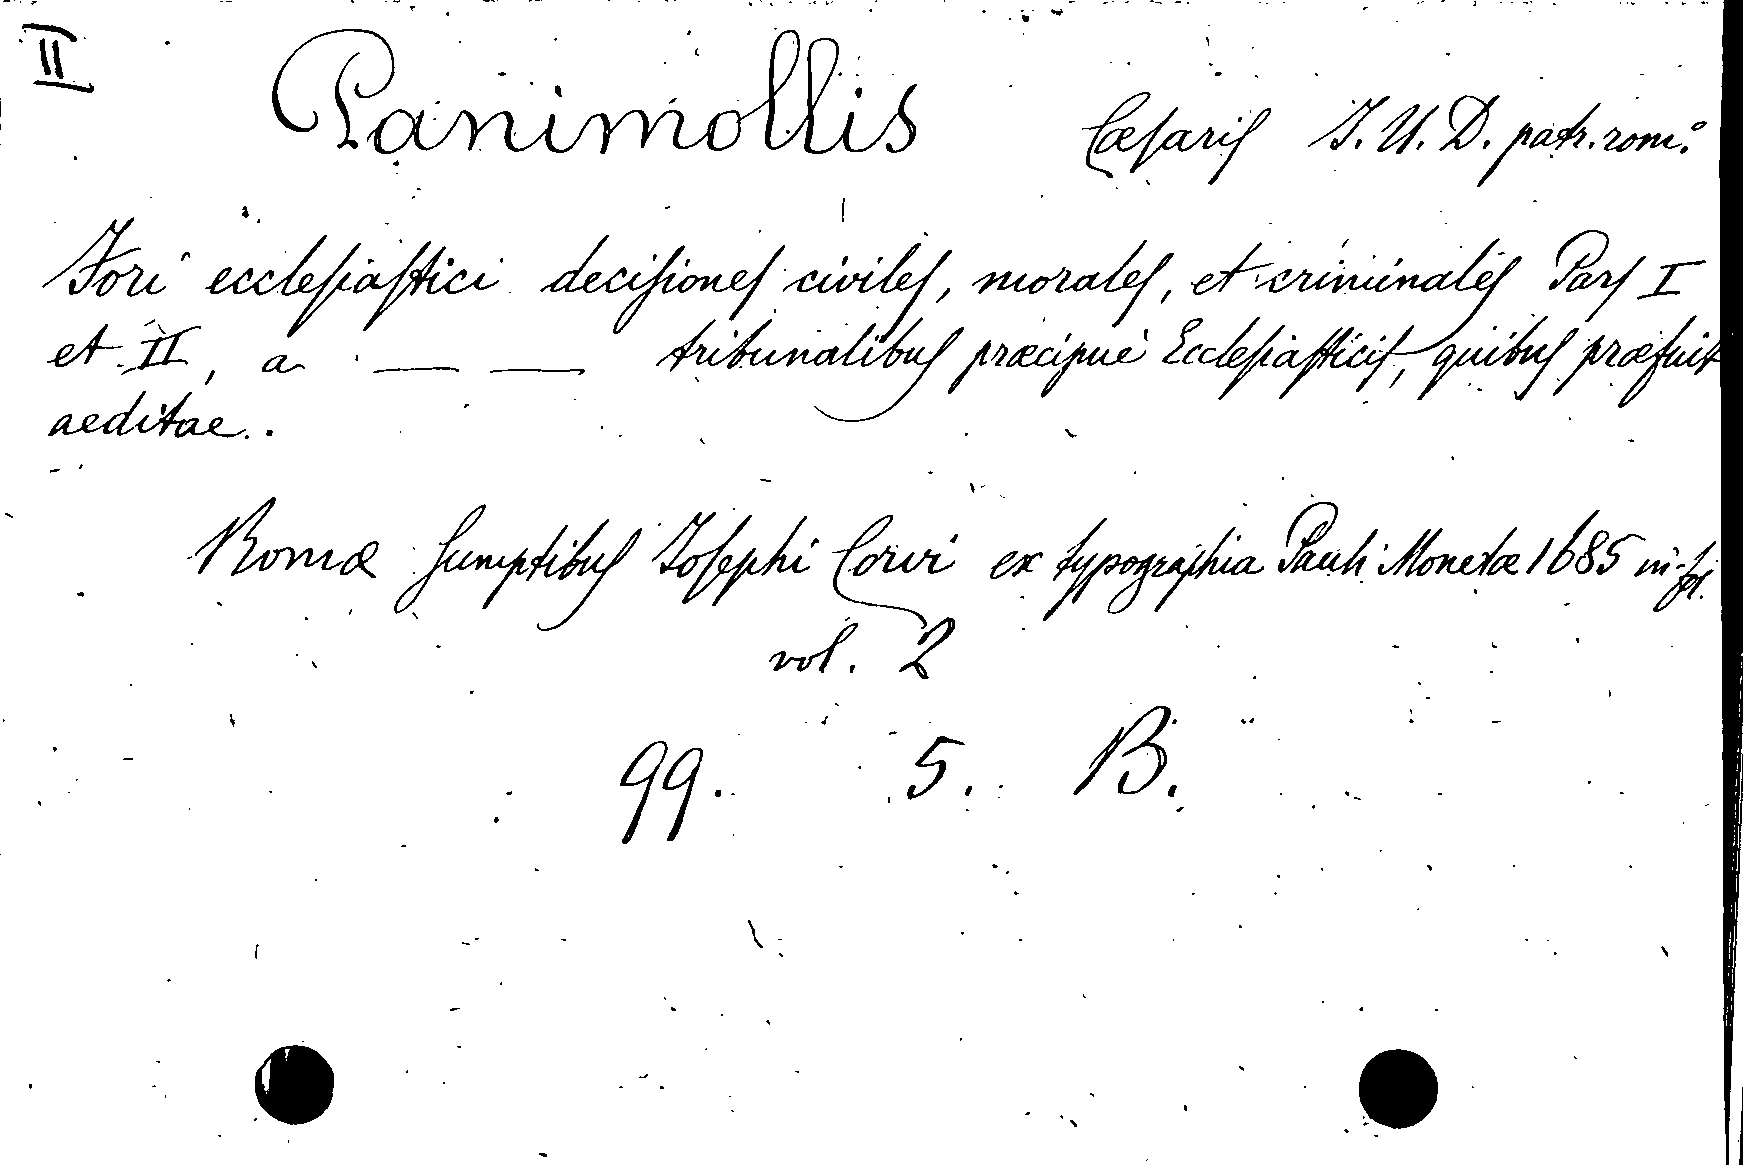 II
Panimollis Cæsaris J. U. D. patr. rom.º
Fori ecclesiastici decisiones civiles, morales, et criminales Pars I
et II, a — — tribunalibus præcipuè Ecclesiasticis, quibus præfuit
aeditae.
Romæ sumptibus Josephi Corvi ex typographia Pauli Monetæ 1685 in-fol.
vol. 2
99. 5. B.